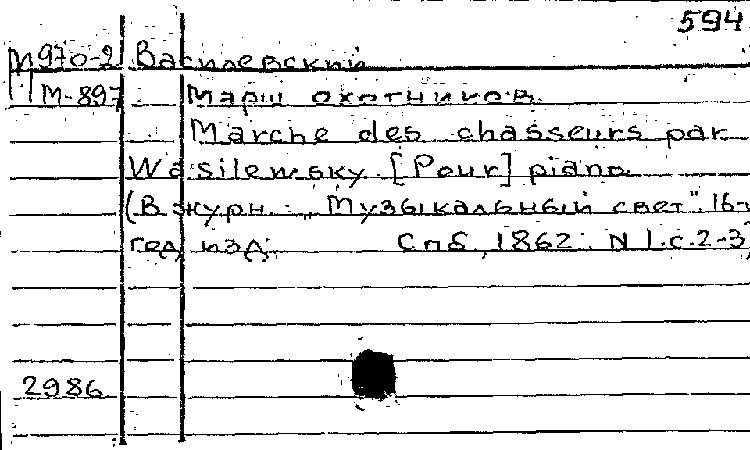 594
М970-2 Василевский
М-897 Марш охотников.
Marche des chasseurs par
Wasilewsky. [Pour] piano
(В журн.: „Музыкальный свет". 16-й
год изд. Спб, 1862. N 1. с. 2-3)
2986